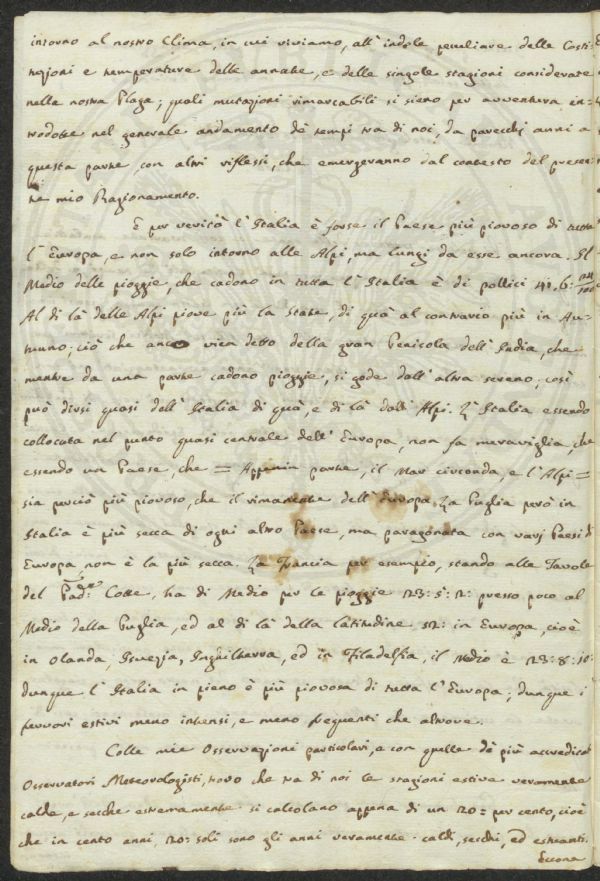 intorno al nostro Clima, in cui viviamo, all'indole peculiare delle Costi-
tuzioni e temperature delle annate, e delle singole stagioni considerate
nella nostra Plaga; quali mutazioni rimarcabili si sieno per avventura in-
trodotte nel generale andamento de' tempi tra di noi, da parecchj anni a
questa parte, con altri riflessi, che emergeranno dal contesto del presen-
te mio Ragionamento.
E per verità l'Italia è forse il Paese più piovoso di tutta
l'Europa, e non solo intorno alle Alpi, ma lungi da esse ancora. Il
Medio delle pioggie, che cadono in tutta l'Italia è di pollici 41.6:
Al di là delle Alpi piove più la State, di quà al contrario più in Au-
tunno; ciò che anco vien detto della gran Penisola dell'India, che
mentre da una parte cadono pioggie, si gode dall'altra sereno; così
può dirsi quasi dell'Italia di quà, e di là dall'Alpi. L'Italia essendo
collocata nel punto quasi centrale dell'Europa, non fa meraviglia, che
essendo un Paese, che = Appenin parte, il Mar circonda, e l'Alpi =
sia perciò più piovoso, che il rimanente dell'Europa. La Puglia però in
Italia è più secca di ogni altro Paese, ma paragonata con varj Paesi di
Europa, non è la più secca. La Francia per esempio, stando alle Tavole
del Pad.re Cotte, ha di Medio per le pioggie 23: 5: 2: presso poco al
Medio della Puglia, ed al di là della latitudine 52: in Europa, cioè
in Olanda, Isvezia, Inghilterra, ed in Filadelfia, il Medio è 23: 8: 10:
dunque l'Italia in pieno è più piovosa di tutta l'Europa; dunque i
fervori estivi meno intensi, e meno frequenti che altrove.
Colle mie Osservazioni particolari, e con quelle de' più accreditati
Osservatori Meteorologisti, trovo che tra di noi le stagioni estive veramente
calde, e secche estremamente si calcolano appena di un 20 = per cento, cioè
che in cento anni, 20: soli sono gli anni veramente caldi, secchi, ed estuanti.
Eccone